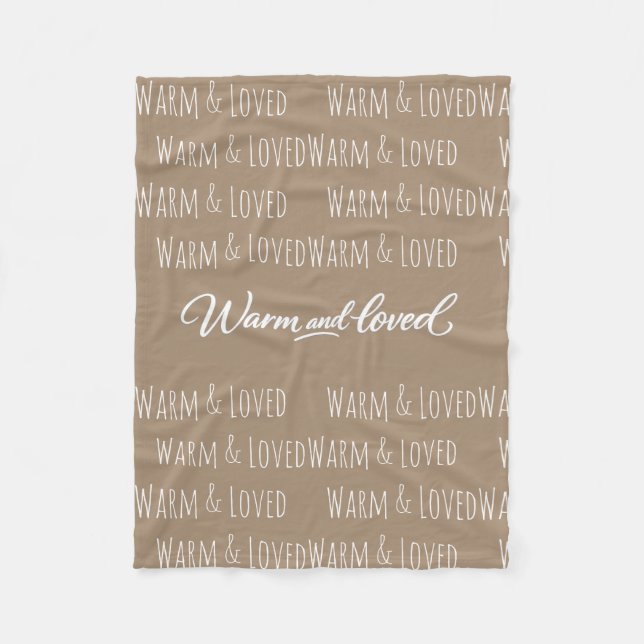 WARM & LOVED WARM & LOVEDWAR
WARM & LOVEDWARM & LOVED W
WARM & LOVED WARM & LOVEDWAR
WARM & LOVEDWARM & LOVED W
Warm and loved
WARM & LOVED WARM & LOVEDWAR
WARM & LOVEDWARM & LOVED W
WARM & LOVED WARM & LOVEDWAR
WARM & LOVEDWARM & LOVED W